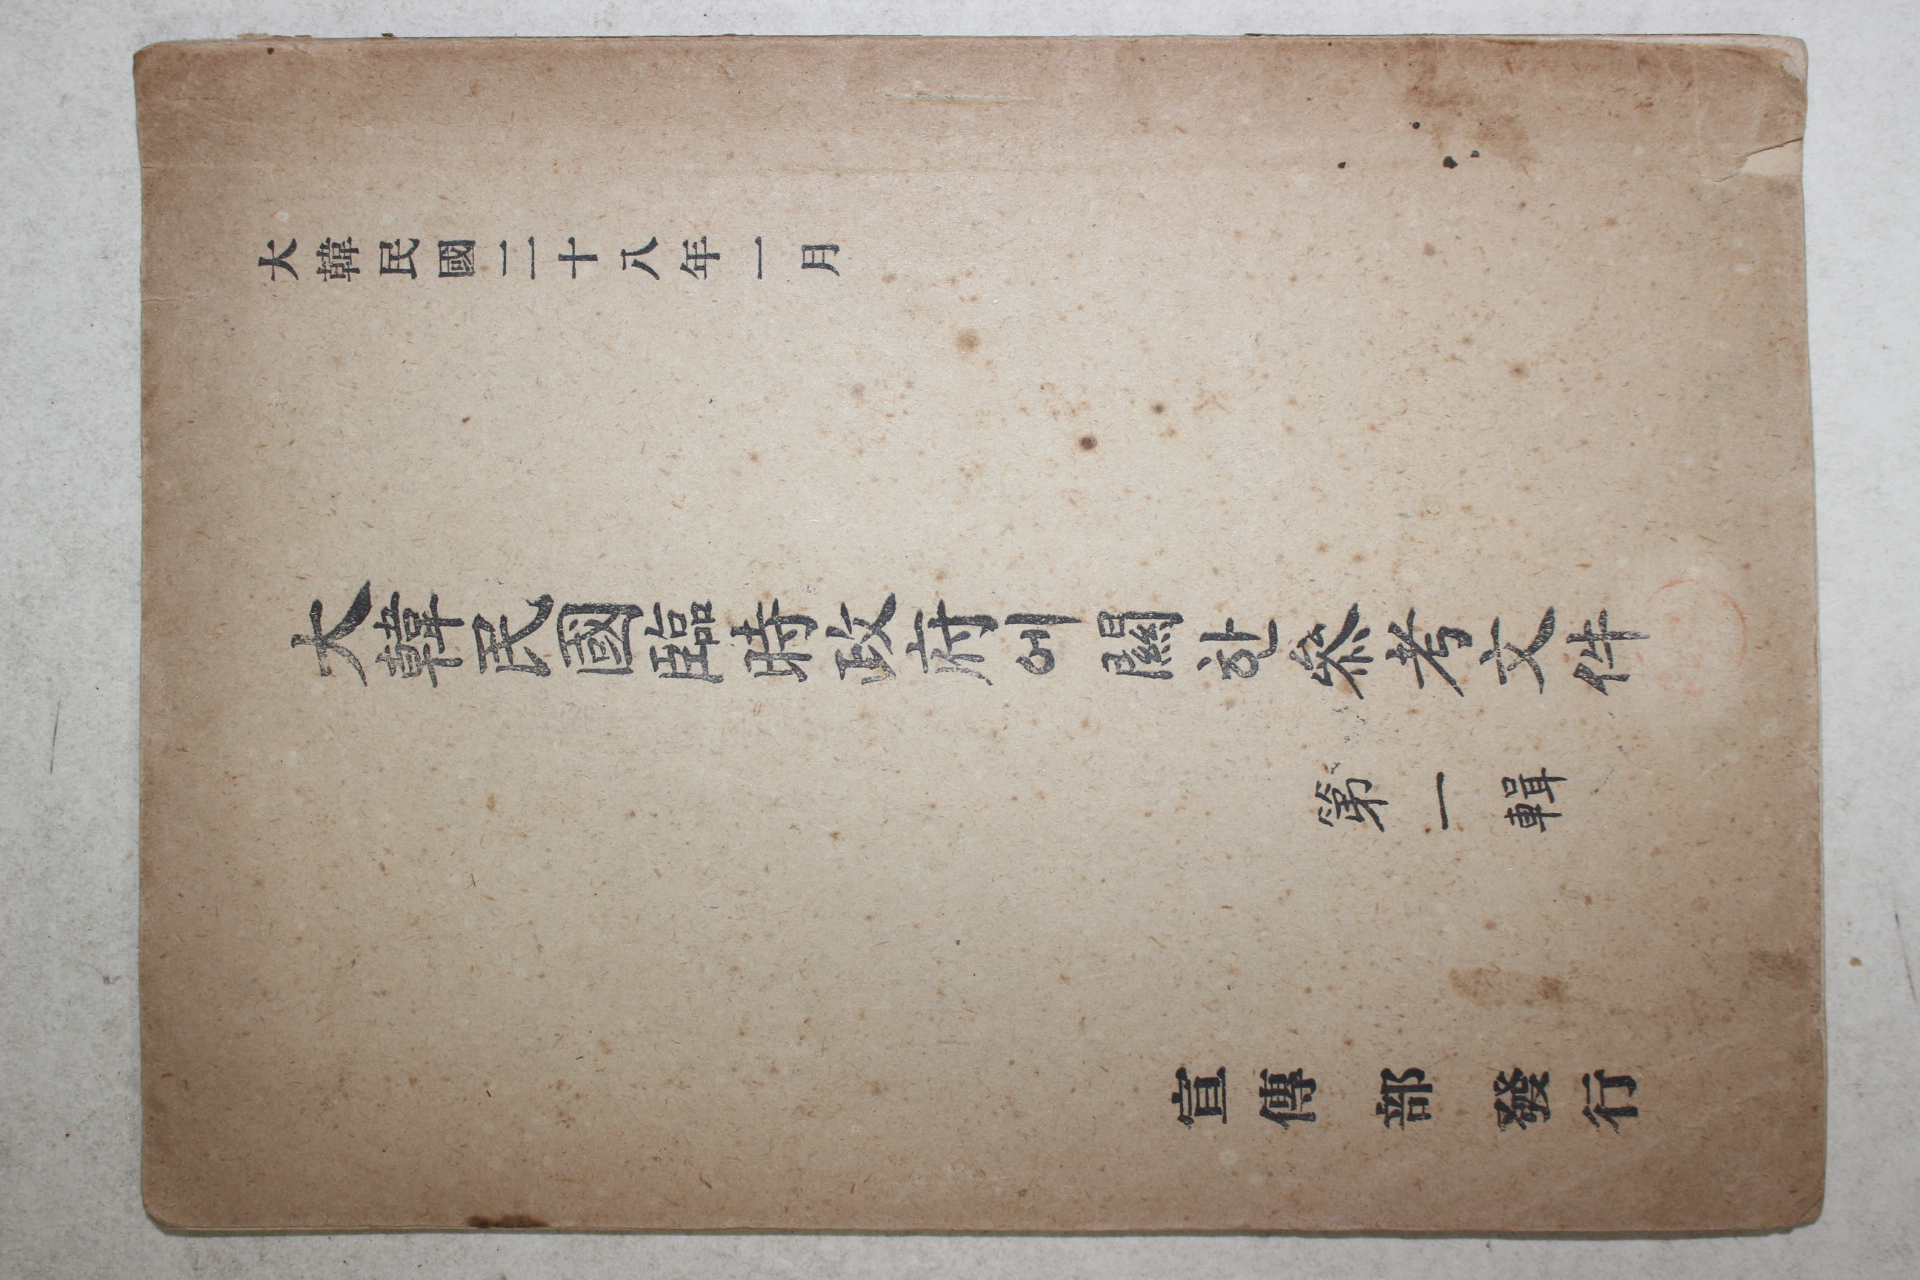 大韓民國二十八年一月
大韓民國臨時政府에關한參考文件
第一輯
宣傳部發行